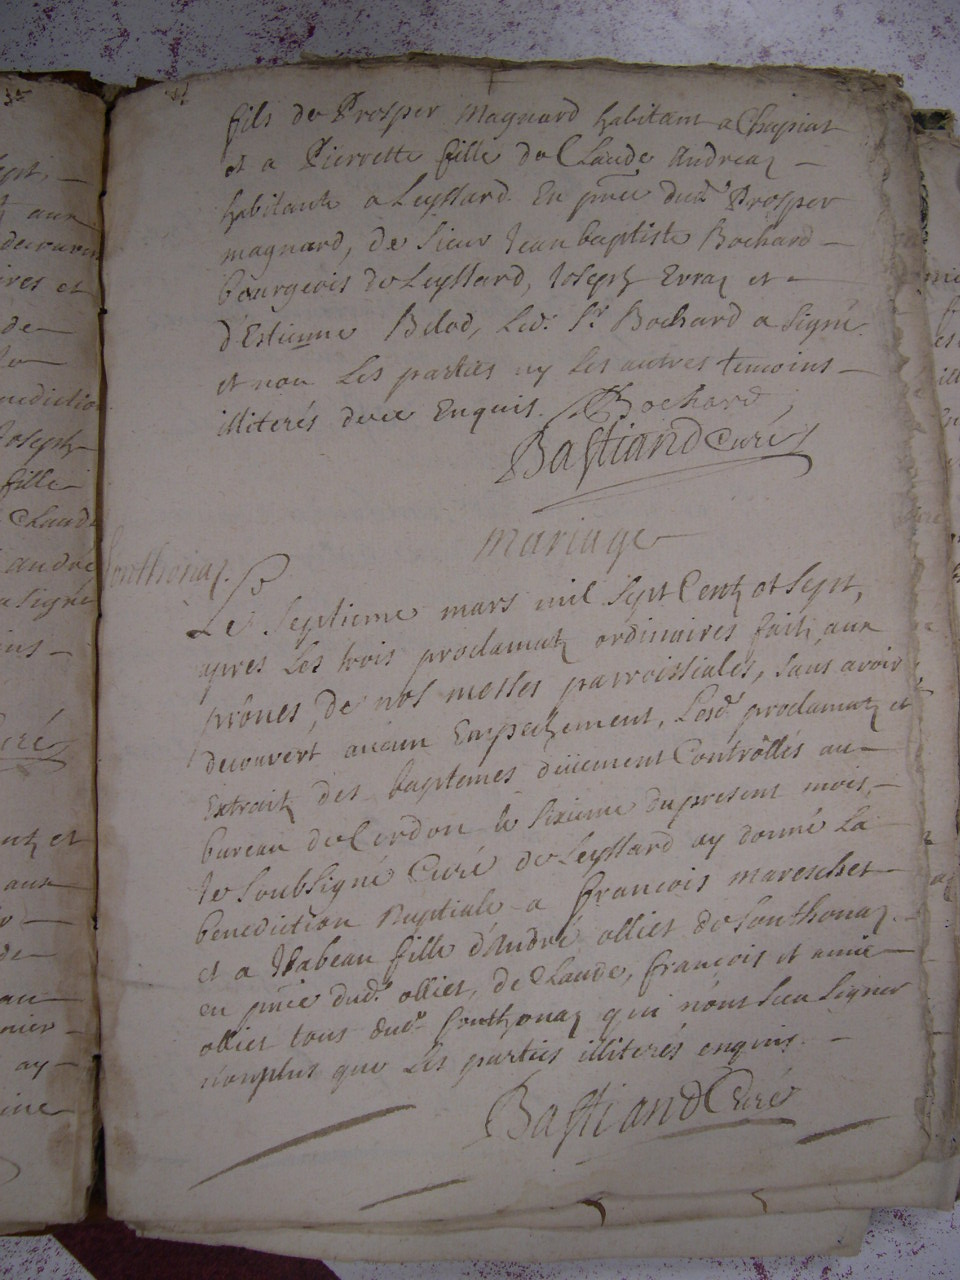 fils de Prosper Magnard habitant a Chapiat
et a Pierrette fille de Claude Andreaz
habitante a Leyssard. En pnce dud. Prosper
magnard, de sieur Jean baptiste Bochard
bourgeois de Leyssard, Joseph Erraz et
d'Estienne Belod, Led. Sr. Bochard a signé
et non Les parties ny Les autres temoins
illiterés de ce Enquis. Bochard
Bastiand Curé
mariage
Sonthonaz.
Le Septieme mars mil Sept Centz et Sept,
apres Les trois proclamatz ordinaires faitz aux
prônes, de nos messes parroissiales, sans avoir
decouvert aucun Empechement, Lesd. proclamatz et
Extraitz des baptemes diiement Contrôllés au
bureau de Cerdon le sixieme du present mois,
Je soubsigné Curé de Leyssard ay donné La
benediction Nuptiale a françois mareschet
et a Isabeau fille d'André olliet de Sonthonaz
en pnce dud. olliet, de Claude, françois et
olliet tous dud. Sonthonaz qui n'ont sceu signer
nonplus que Les parties illiterés enquis.
Bastiand Curé